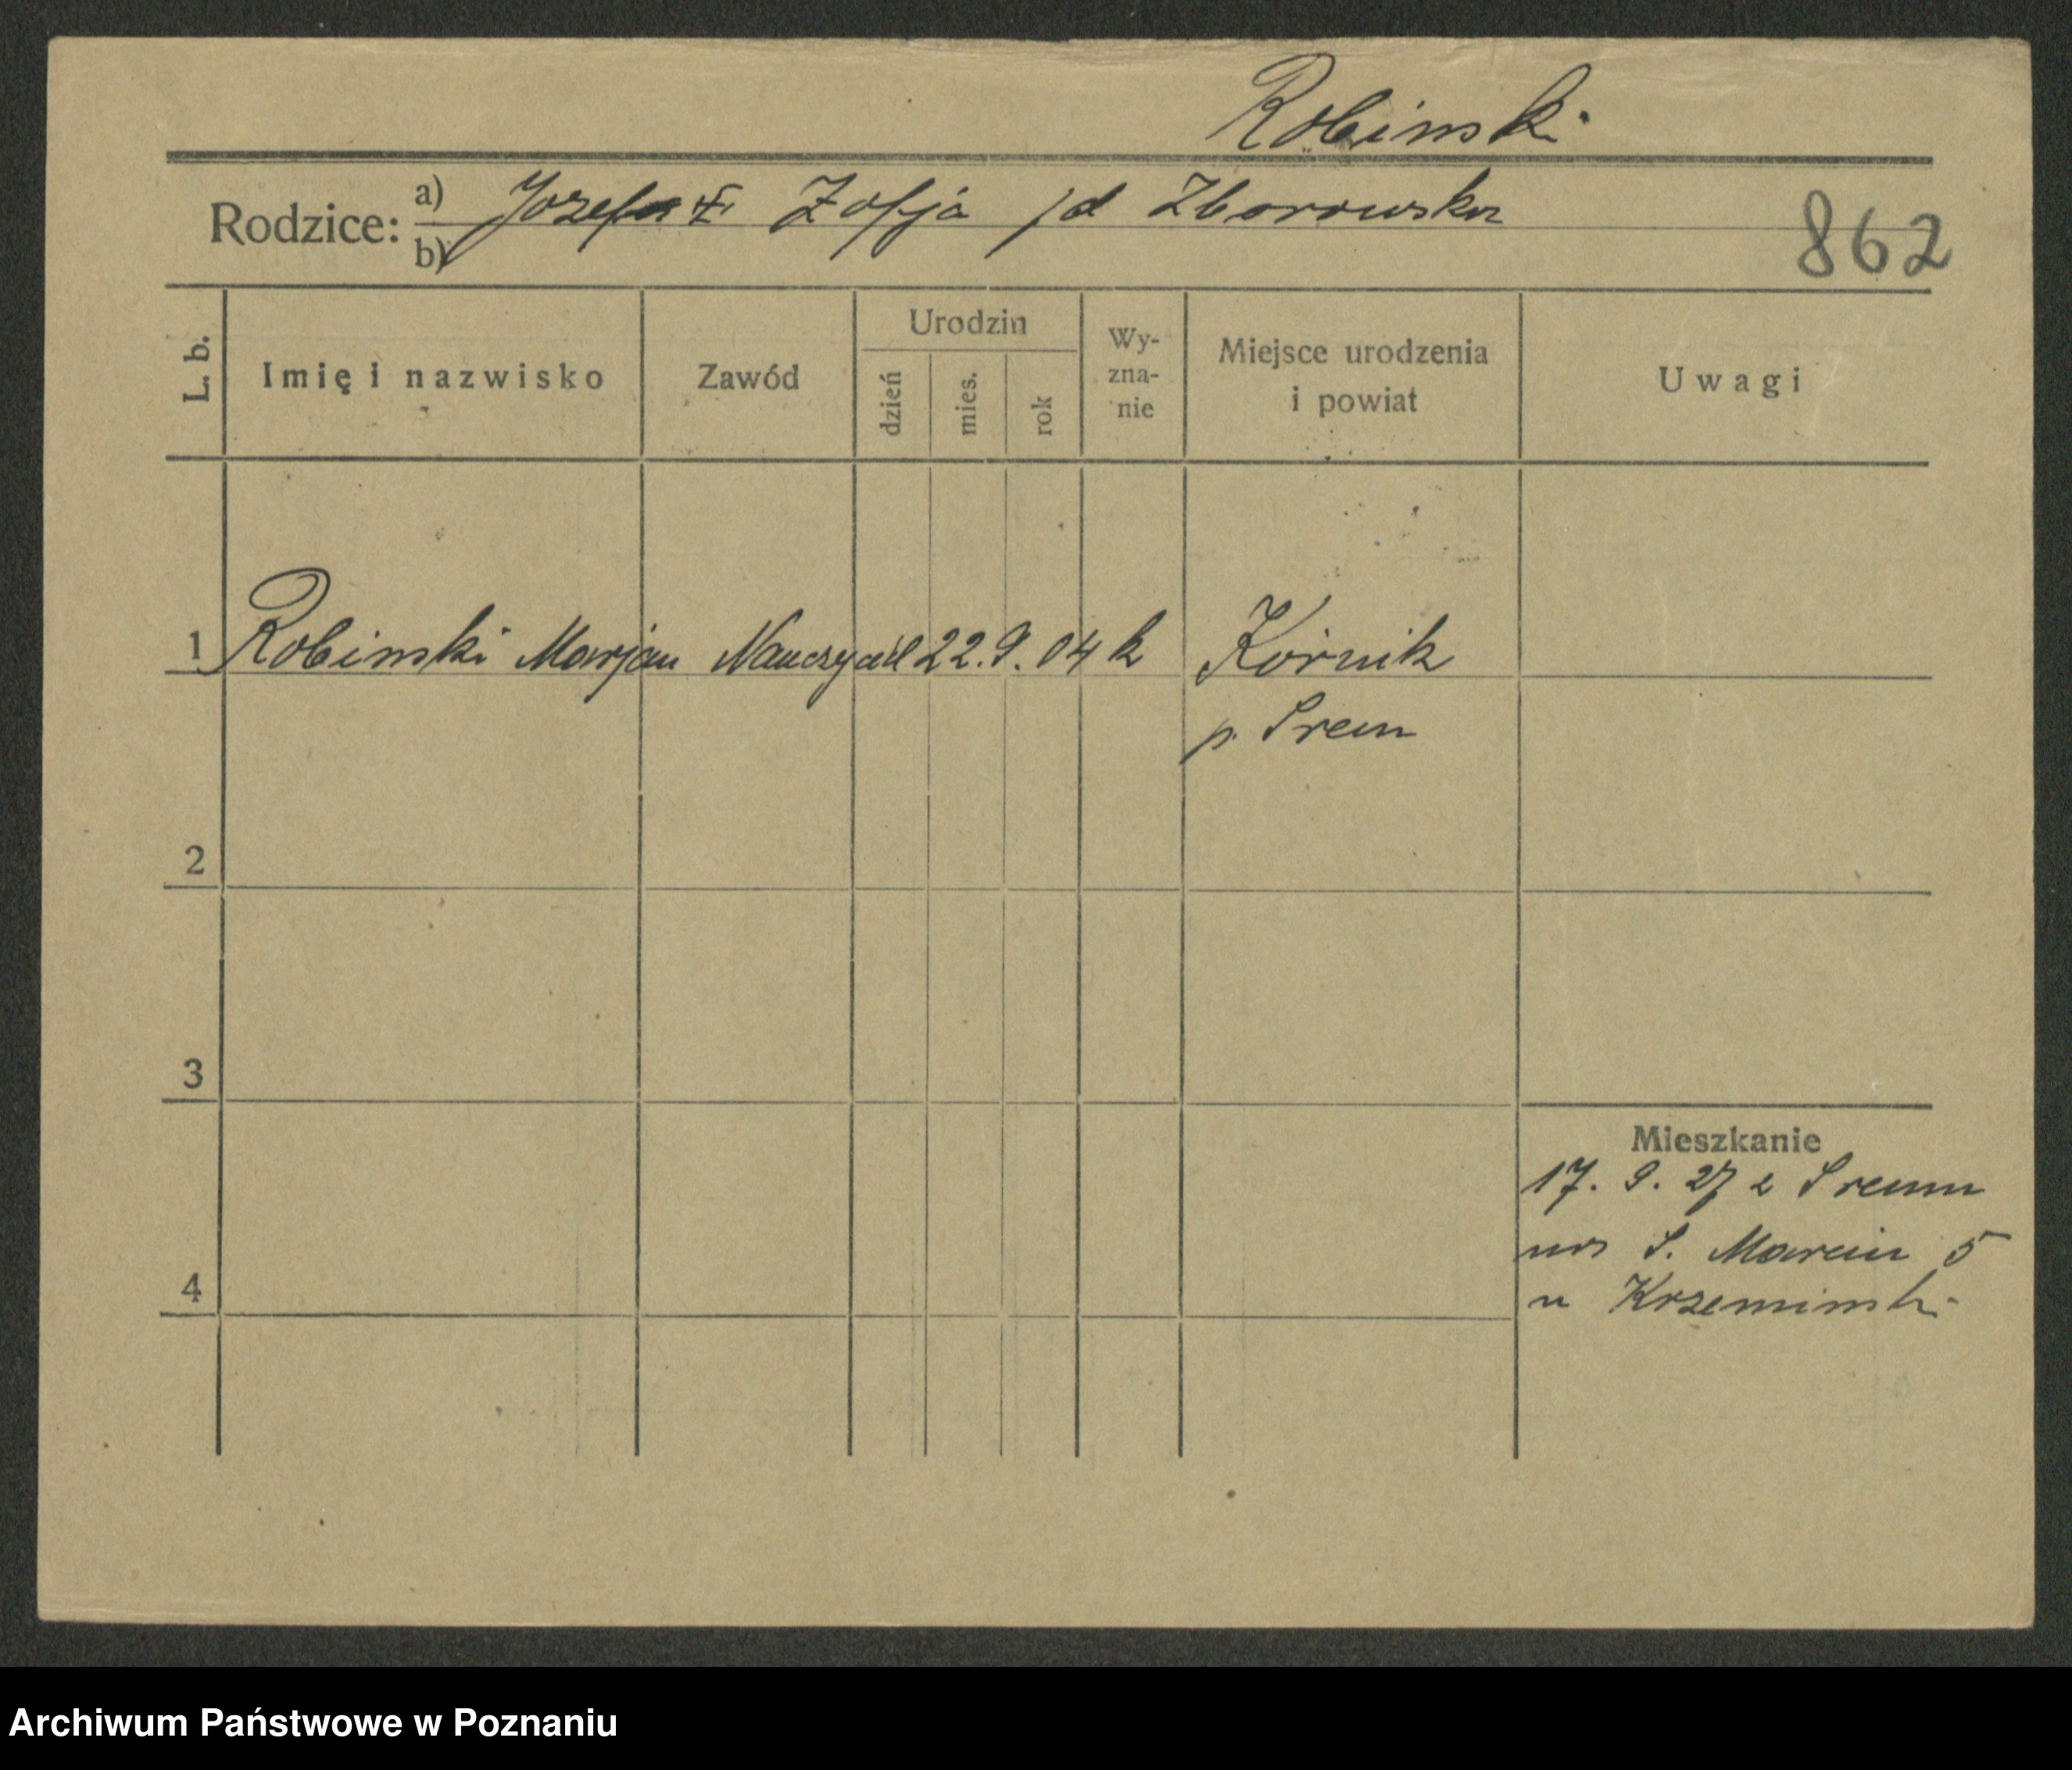 Robinski
Rodzice: a) Jozef Zofja /d Zborowska
b)
862
L. b.
Imię i nazwisko
Zawód
Urodzin
dzień
mies.
rok
Wy-
zna-
nie
Miejsce urodzenia
i powiat
Uwagi
1 Robinski Marjan Nauczyciel 22. 9. 04 k Kórnik
p. Srem
2
3
Mieszkanie
17. 9. 27 z Sremu
na S. Marcin 5
4
u Krzeminski
Archiwum Państwowe w Poznaniu